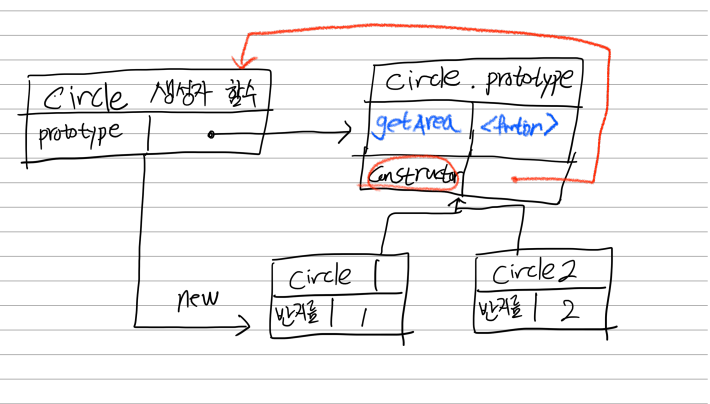 Circle 생성자 함수
prototype
Circle . prototype
getArea
constructor
new
Circle 1
반지름 1
Circle 2
반지름 2